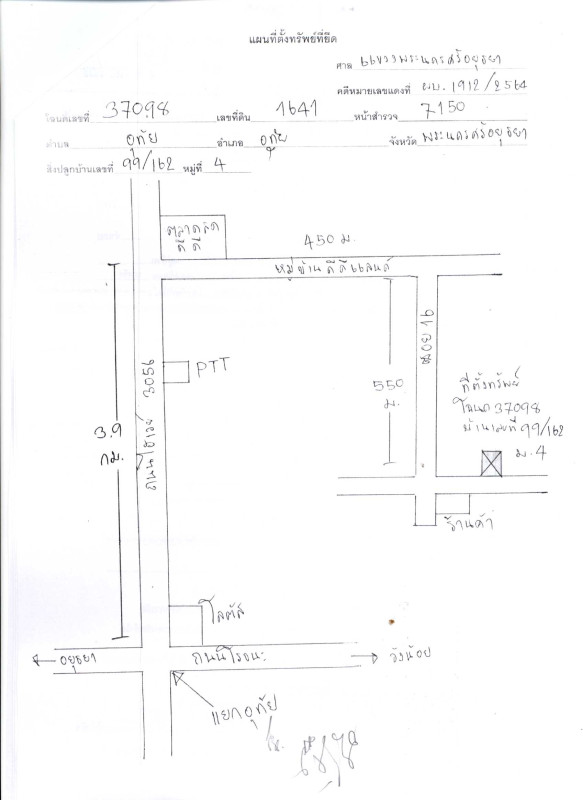 แผนที่ตั้งทรัพย์ที่ยึด
ศาล แขวงพระนครศรีอยุธยา
คดีหมายเลขแดงที่ ผบ. 1912/2564
โฉนดเลขที่ 37098 เลขที่ดิน 1641 หน้าสำรวจ 7150
ตำบล อุทัย อำเภอ อุทัย จังหวัด พระนครศรีอยุธยา
สิ่งปลูกบ้านเลขที่ 99/162 หมู่ที่ 4
ตลาดสด
ดีดี
450 ม.
หมู่บ้านดีดีแลนด์
ซอย 16
PTT
ถนนไฮเวย์ 3056
3.9
กม.
550
ม.
ที่ตั้งทรัพย์
โฉนด 37098
บ้านเลขที่ 99/162
ม. 4
ร้านค้า
โลตัส
อยุธยา
ถนนโรจนะ
วังน้อย
แยกอุทัย